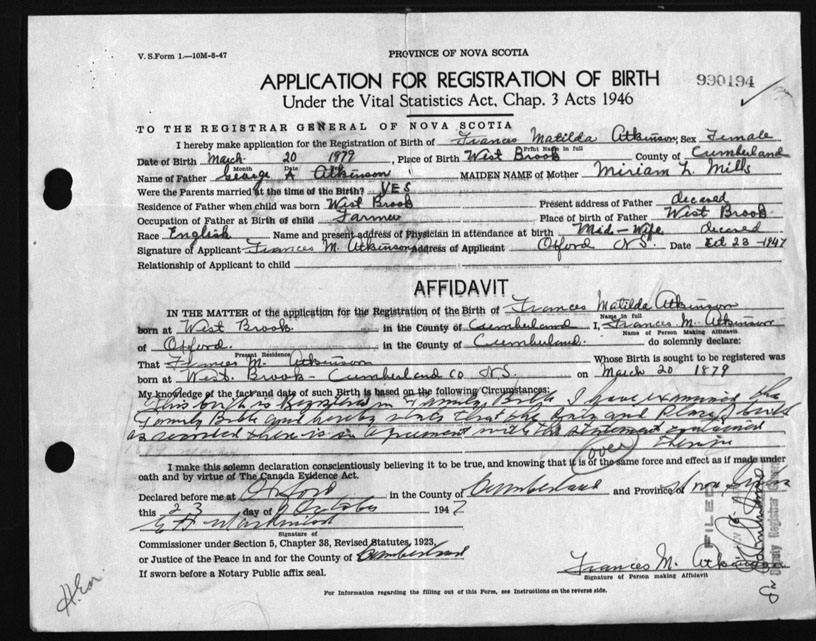 V. S. Form 1.—10M-8-47
PROVINCE OF NOVA SCOTIA
APPLICATION FOR REGISTRATION OF BIRTH
990194
Under the Vital Statistics Act, Chap. 3 Acts 1946
TO THE REGISTRAR GENERAL OF NOVA SCOTIA
I hereby make application for the Registration of Birth of Frances Matilda Atkinson, Sex Female
Print Name in full
Date of Birth March 20 1879, Place of Birth West Brook County of Cumberland
Month Date
Name of Father George A Atkinson MAIDEN NAME of Mother Miriam L. Mills
Were the Parents married at the time of the Birth? YES
Residence of Father when child was born West Brook Present address of Father deceased
Occupation of Father at Birth of child Farmer Place of birth of Father West Brook
Race English Name and present address of Physician in attendance at birth Mid-Wife deceased
Signature of Applicant Frances M. Atkinson address of Applicant Oxford N.S. Date Oct 23-1947
Relationship of Applicant to child
AFFIDAVIT
IN THE MATTER of the application for the Registration of the Birth of Frances Matilda Atkinson
Name in full
born at West Brook in the County of Cumberland I, Frances M. Atkinson
Name of Person Making Affidavit
of Oxford. in the County of Cumberland. do solemnly declare:
Present Residence
That Frances M. Atkinson Whose Birth is sought to be registered was
born at West. Brook - Cumberland Co N.S. on March 20 1879
My knowledge of the fact and date of such Birth is based on the following Circumstances:
This birth is Registered in Family Bible I have examined the
Family Bible and hereby state that the date and Place of birth
as recorded there is in agreement with the statement contained
herein
(over)
I make this solemn declaration conscientiously believing it to be true, and knowing that it is of the same force and effect as if made under
oath and by virtue of The Canada Evidence Act.
Declared before me at Oxford in the County of Cumberland and Province of Nova Scotia
this 23 day of October 1947
Signature of
Commissioner under Section 5, Chapter 38, Revised Statutes, 1923,
or Justice of the Peace in and for the County of Cumberland
If sworn before a Notary Public affix seal.
Frances M. Atkinson
Signature of Person making Affidavit
FILED
Deputy Registrar
For Information regarding the filling out of this Form, see Instructions on the reverse side.